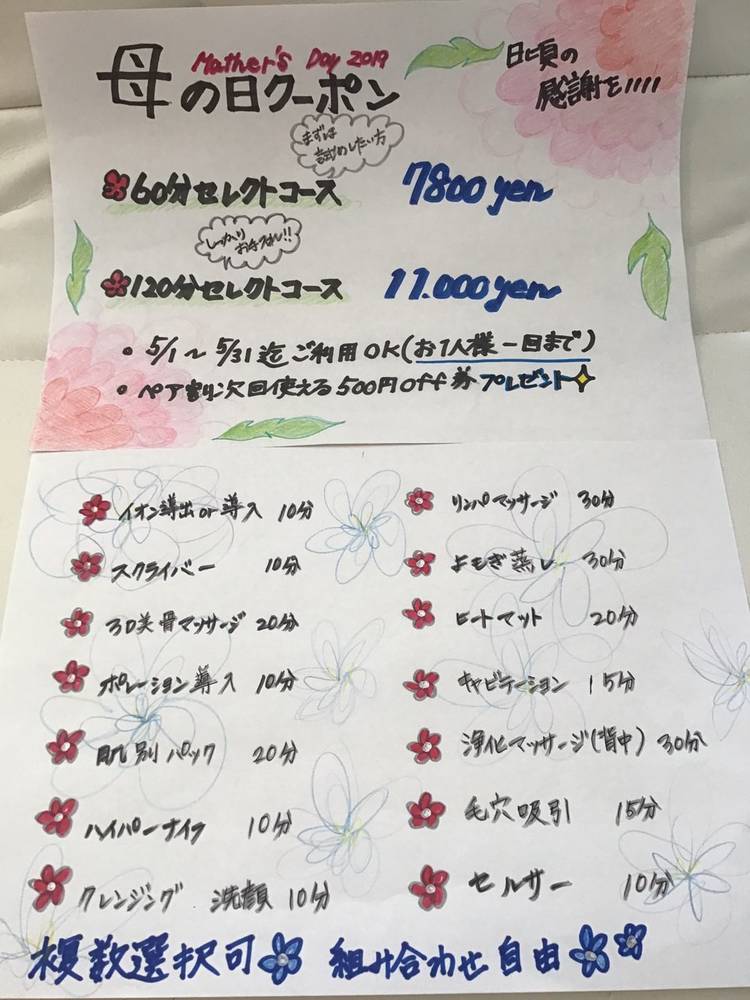 Mather's Day 2019
母の日クーポン
日頃の
感謝を!!!!
まずは
試めしたい方
60分セレクトコース 7800yen
しっかり
お手入れ!!
120分セレクトコース 11.000yen
• 5/1〜5/31迄ご利用OK(お1人様一回まで)
• ペア割次回使える500円Off券プレゼント
イオン導出or導入 10分
スクライバー 10分
3D美骨マッサージ 20分
ポレーション導入 10分
肌別パック 20分
ハイパーナイフ 10分
クレンジング 洗顔 10分
リンパマッサージ 30分
よもぎ蒸し 30分
ヒートマット 20分
キャビテーション 15分
浄化マッサージ(背中) 30分
毛穴吸引 15分
セルサー 10分
複数選択可 組み合わせ自由